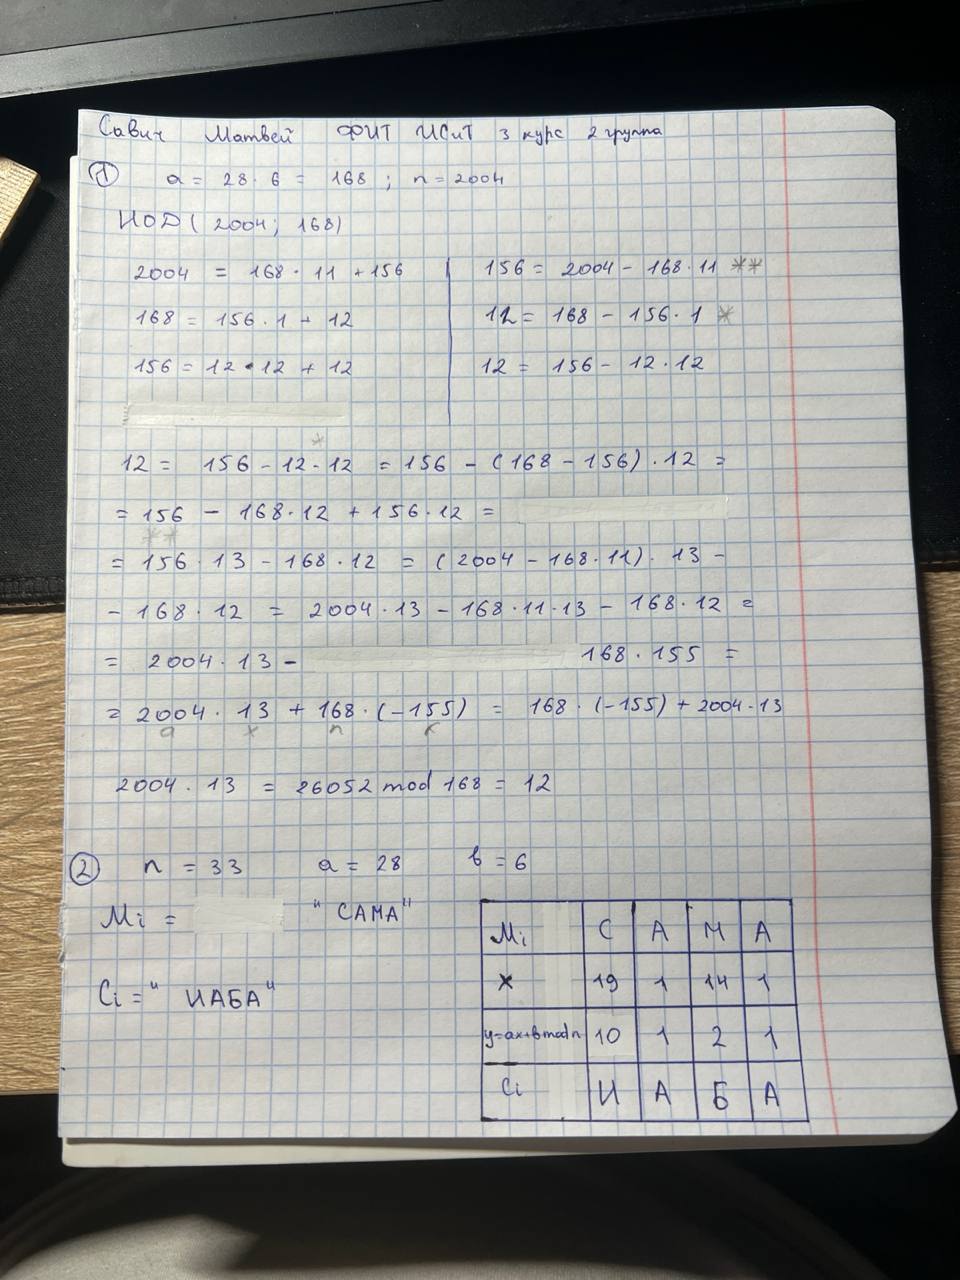 Савич Матвей ФИТ ИСиТ 3 курс 2 группа
① a = 28 · 6 = 168 ; n = 2004
НОД ( 2004 ; 168)
2004 = 168 · 11 + 156 156 = 2004 - 168 · 11 **
168 = 156 · 1 + 12 12 = 168 - 156 · 1 *
156 = 12 · 12 + 12 12 = 156 - 12 · 12
*
12 = 156 - 12 · 12 = 156 - (168 - 156) · 12 =
= 156 - 168 · 12 + 156 · 12 =
**
= 156 · 13 - 168 · 12 = (2004 - 168 · 11) · 13 -
- 168 · 12 = 2004 · 13 - 168 · 11 · 13 - 168 · 12 =
= 2004 · 13 - 168 · 155 =
= 2004 · 13 + 168 · (-155) = 168 · (-155) + 2004 · 13
a x n
2004 · 13 = 26052 mod 168 = 12
② n = 33 a = 28 b = 6
Mi = "САМА"
Ci = "ИАБА"
Mi С А М А
x 19 1 14 1
y=ax+b mod n 10 1 2 1
Ci И А Б А